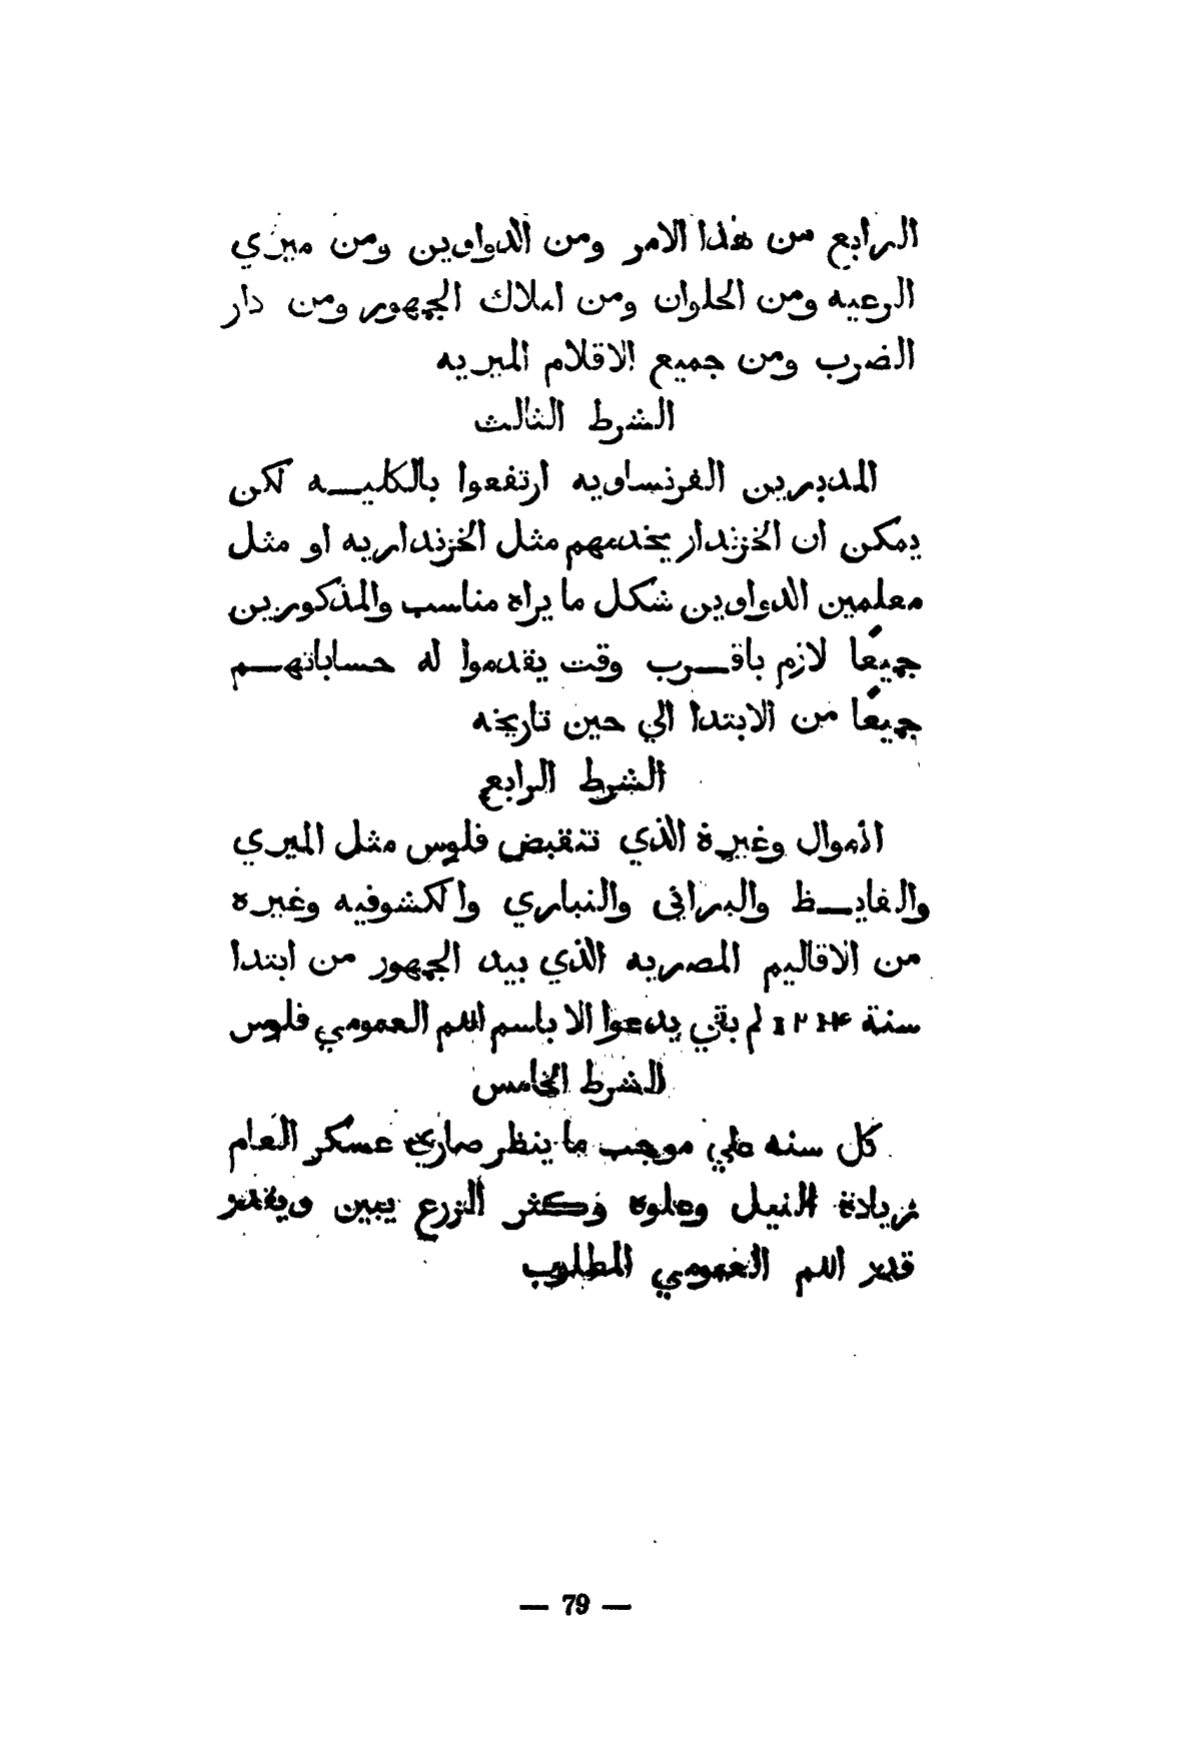 الرابع من هذا الامر ومن الدواوين ومن ميري
الرعيه ومن الحلوان ومن املاك الجمهور ومن دار
الضرب ومن جميع الاقلام الميريه
الشرط الثالث
المدبرين الفرنساويه ارتفعوا بالكليه لكن
يمكن ان الخزندار يخدمهم مثل الخزنداريه او مثل
معلمين الدواوين شكل ما يراه مناسب والمذكورين
جميعًا لازم باقرب وقت يقدموا له حساباتهم
جميعًا من الابتدا الي حين تاريخه
الشرط الرابع
الاموال وغيرة الذي تنقبض فلوس مثل الميري
والفايظ والبراني والنباري والكشوفيه وغيره
من الاقاليم المصريه الذي بيد الجمهور من ابتدا
سنة ١٢١٤ لم بقي يدعوا الا باسم اللم العمومي فلوس
الشرط الخامس
كل سنه علي موجب ما ينظر صاري عسكر العام
زيادة النيل وعلوه وكثر الزرع يبين ويقدر
قدر اللم العمومي المطلوب
— 79 —